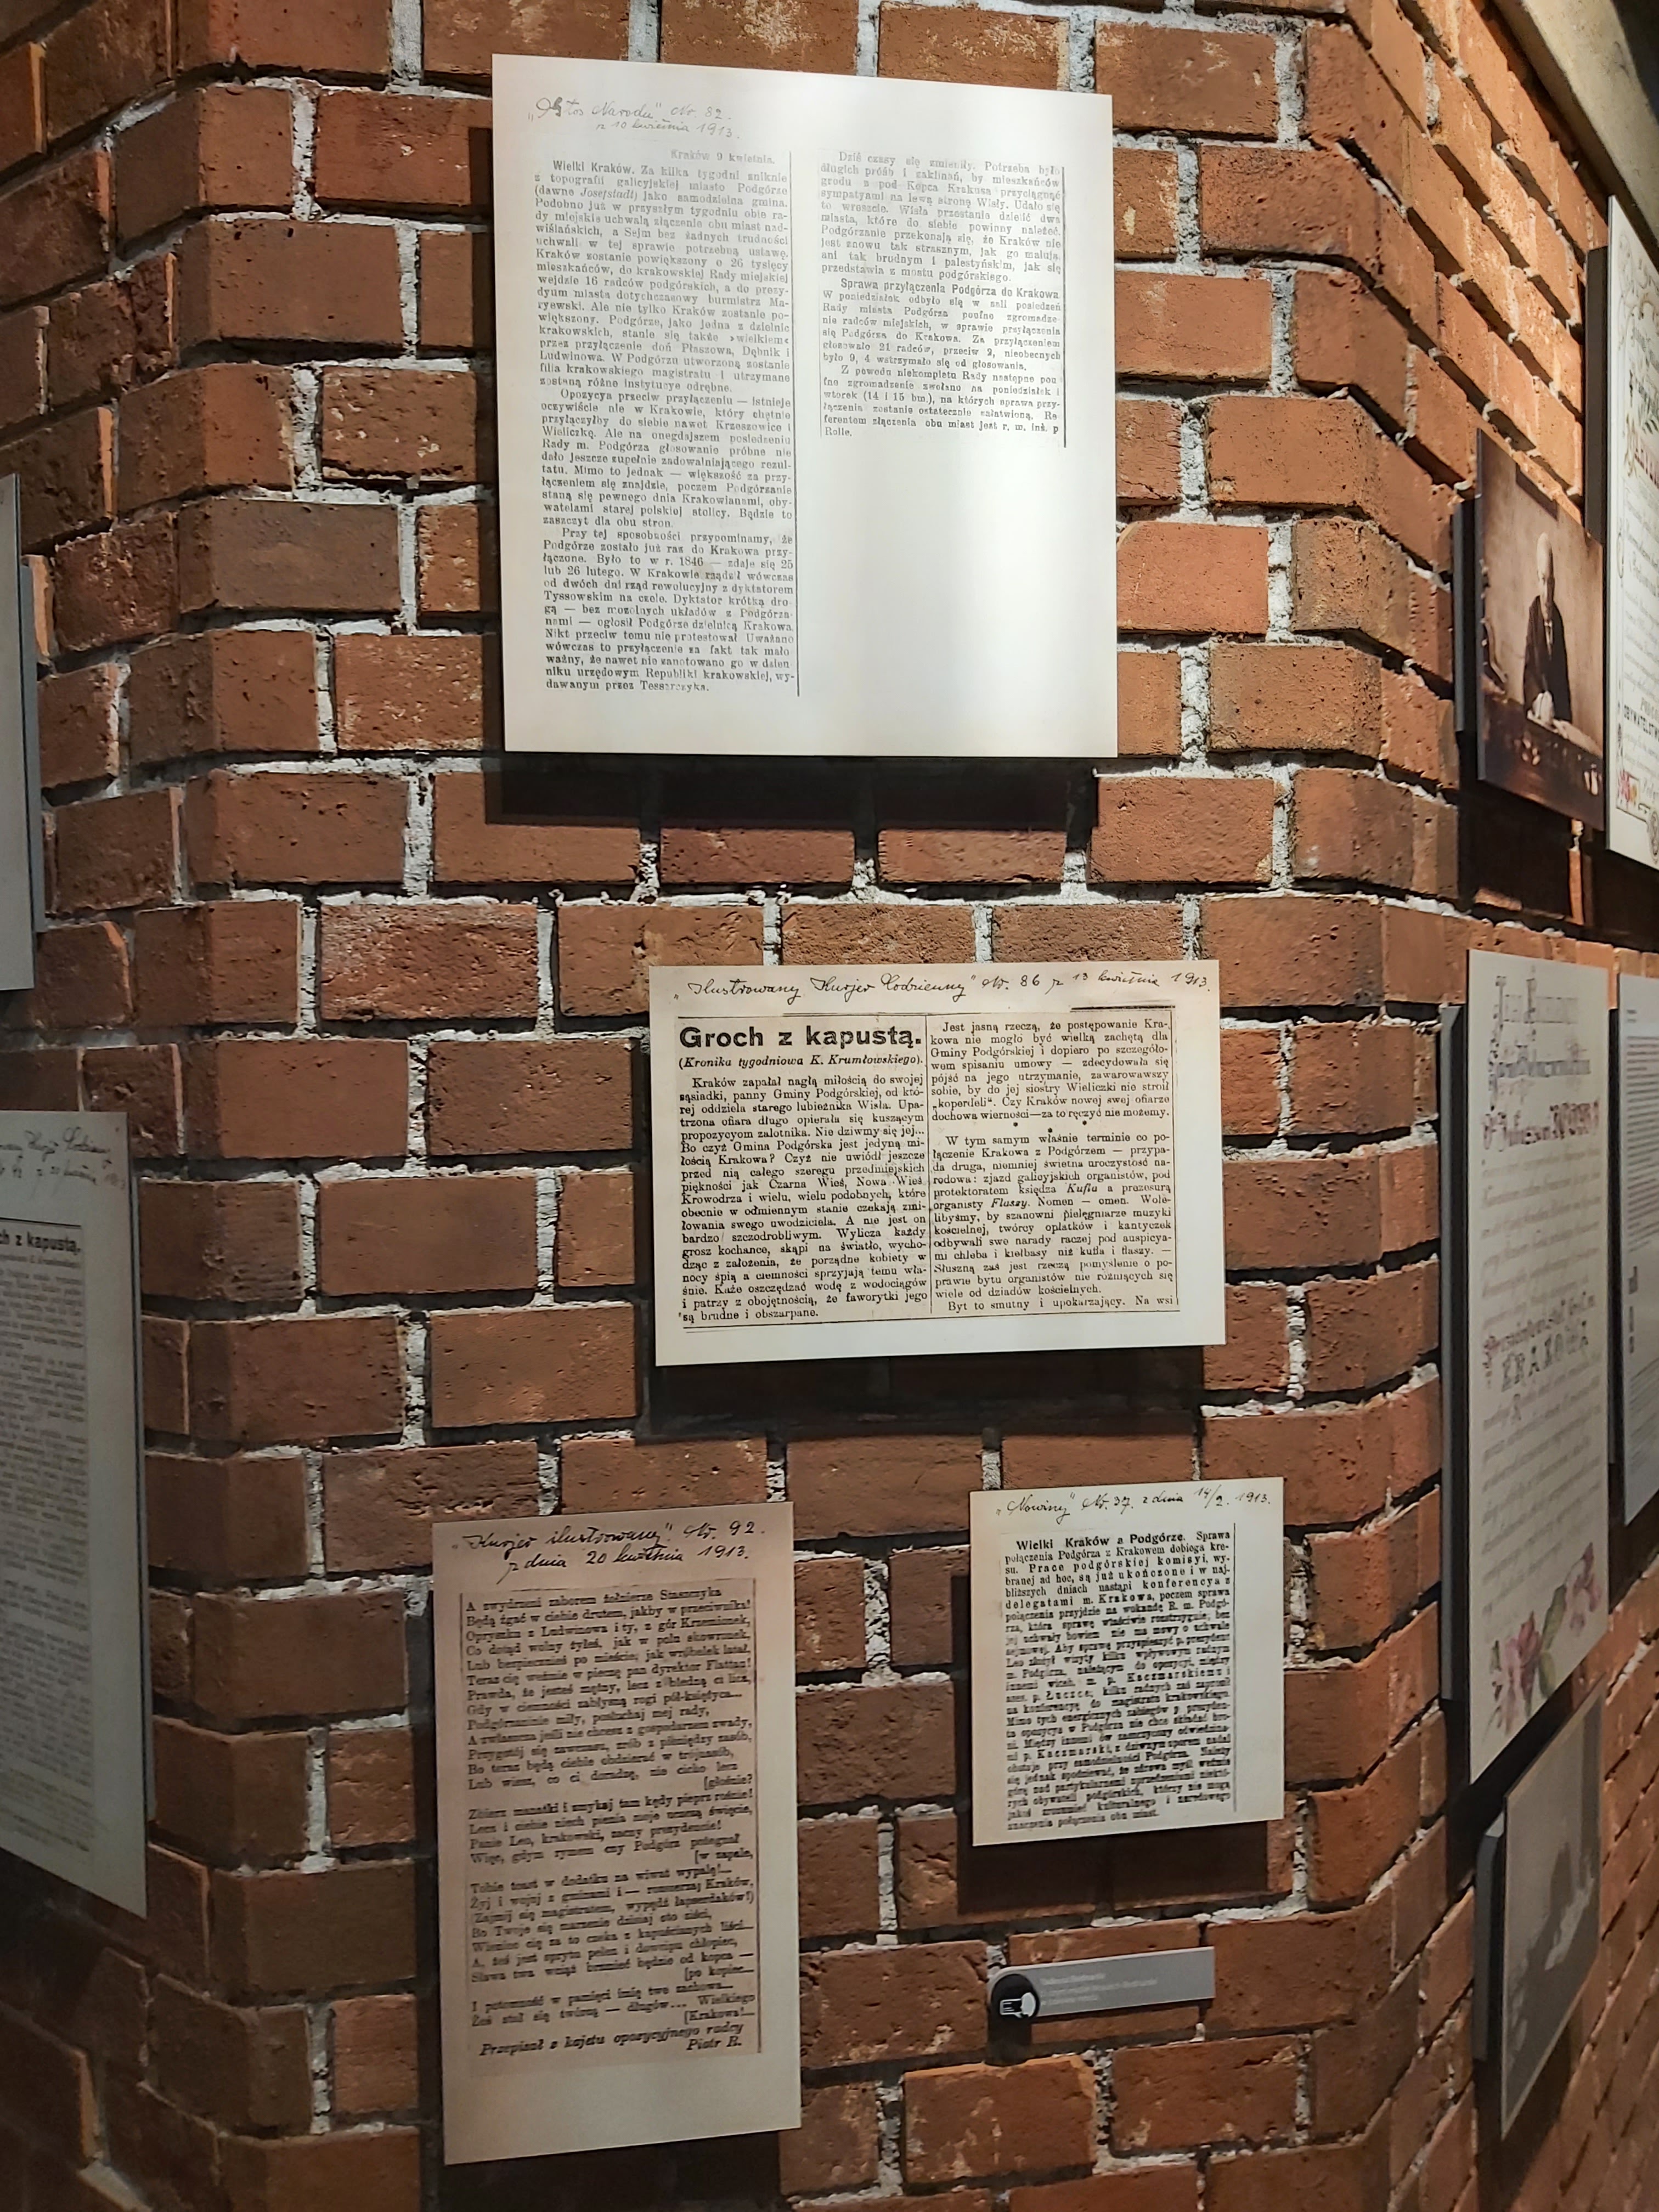 „Głos Narodu" Nr. 82.
z 10 kwietnia 1913.
Kraków 9 kwietnia.
Wielki Kraków. Za kilka tygodni zniknie
z topografii galicyjskiej miasto Podgórze
(dawne Josefstadt) jako samodzielna gmina.
Podobno już w przyszłym tygodniu obie ra-
dy miejskie uchwalą złączenie obu miast nad-
wiślańskich, a Sejm bez żadnych trudności
uchwali w tej sprawie potrzebną ustawę.
Kraków zostanie powiększony o 26 tysięcy
mieszkańców, do krakowskiej Rady miejskiej
wejdzie 16 radców podgórskich, a do prezy-
dyum miasta dotychczasowy burmistrz Ma-
ryewski. Ale nie tylko Kraków zostanie po-
większony. Podgórze, jako jedna z dzielnic
krakowskich, stanie się także »wielkiem«
przez przyłączenie doń Płaszowa, Dębnik i
Ludwinowa. W Podgórzu utworzoną zostanie
filia krakowskiego magistratu i utrzymane
zostaną różne instytucye odrębne.
Opozycya przeciw przyłączeniu — istnieje
oczywiście nie w Krakowie, który chętnie
przyłączyłby do siebie nawet Krzeszowice i
Wieliczkę. Ale na onegdajszem posiedzeniu
Rady m. Podgórza głosowanie próbne nie
dało jeszcze zupełnie zadowalniającego rezul-
tatu. Mimo to jednak — większość za przy-
łączeniem się znajdzie, poczem Podgórzanie
staną się pewnego dnia Krakowianami, oby-
watelami starej polskiej stolicy. Będzie to
zaszczyt dla obu stron.
Przy tej sposobności przypominamy, że
Podgórze zostało już raz do Krakowa przy-
łączone. Było to w r. 1846 — zdaje się 25
lub 26 lutego. W Krakowie rządził wówczas
od dwóch dni rząd rewolucyjny z dyktatorem
Tyssowskim na czele. Dyktator krótką dro-
gą — bez mozolnych układów z Podgórza-
nami — ogłosił Podgórze dzielnicą Krakowa.
Nikt przeciw temu nie protestował. Uważano
wówczas to przyłączenie za fakt tak mało
ważny, że nawet nie zanotowano go w dzien-
niku urzędowym Republiki krakowskiej, wy-
dawanym przez Tessarczyka.
Dziś czasy się zmieniły. Potrzeba było
długich próśb i zaklinań, by mieszkańców
grodu z pod Kopca Krakusa przyciągnąć
sympatyami na lewą stronę Wisły. Udało się
to wreszcie. Wisła przestanie dzielić dwa
miasta, które do siebie powinny należeć.
Podgórzanie przekonają się, że Kraków nie
jest znowu tak strasznym, jak go malują,
ani tak brudnym i palestyńskim, jak się
przedstawia z mostu podgórskiego.
Sprawa przyłączenia Podgórza do Krakowa.
W poniedziałek odbyło się w sali posiedzeń
Rady miasta Podgórza poufne zgromadze-
nie radców miejskich, w sprawie przyłączenia
się Podgórza do Krakowa. Za przyłączeniem
głosowało 21 radców, przeciw 2, nieobecnych
było 9, 4 wstrzymało się od głosowania.
Z powodu niekompletu Rady następne pou-
fne zgromadzenie zwołano na poniedziałek i
wtorek (14 i 15 bm.), na których sprawa przy-
łączenia zostanie ostatecznie załatwioną. Re-
ferentem złączenia obu miast jest r. m. inż. p
Rolle.
„Ilustrowany Kurjer Codzienny" Nr. 86 z 13 kwietnia 1913.
Groch z kapustą.
(Kronika tygodniowa K. Krumłowskiego).
Kraków zapałał nagłą miłością do swojej
sąsiadki, panny Gminy Podgórskiej, od któ-
rej oddziela starego lubieżnika Wisła. Upa-
trzona ofiara długo opierała się kuszącym
propozycyom zalotnika. Nie dziwmy się jej...
Bo czyż Gmina Podgórska jest jedyną mi-
łością Krakowa? Czyż nie uwiódł jeszcze
przed nią całego szeregu przedmiejskich
piękności jak Czarna Wieś, Nowa Wieś
Krowodrza i wielu, wielu podobnych, które
obecnie w odmiennym stanie czekają zmi-
łowania swego uwodziciela. A nie jest on
bardzo szczodrobliwym. Wylicza każdy
grosz kochance, skąpi na światło, wycho-
dząc z założenia, że porządne kobiety w
nocy śpią a ciemności sprzyjają temu wła-
śnie. Każe oszczędzać wodę z wodociągów
i patrzy z obojętnością, że faworytki jego
są brudne i obszarpane.
Jest jasną rzeczą, że postępowanie Kra-
kowa nie mogło być wielką zachętą dla
Gminy Podgórskiej i dopiero po szczegóło-
wem spisaniu umowy — zdecydowała się
pójść na jego utrzymanie, zawarowawszy
sobie, by do jej siostry Wieliczki nie stroił
„koperdeli". Czy Kraków nowej swej ofiarze
dochowa wierności—za to ręczyć nie możemy.
* * *
W tym samym właśnie terminie co po-
łączenie Krakowa z Podgórzem — przypa-
da druga, niemniej świetna uroczystość na-
rodowa: zjazd galicyjskich organistów, pod
protektoratem księdza Kufla a prezesurą
organisty Flaszy. Nomen — omen. Wole-
libyśmy, by szanowni pielęgniarze muzyki
kościelnej, twórcy opłatków i kantyczek
odbywali swe narady raczej pod auspicya-
mi chleba i kiełbasy niż kufla i flaszy. —
Słuszną zaś jest rzeczą pomyślenie o po-
prawie bytu organistów nie rożniących się
wiele od dziadów kościelnych.
Byt to smutny i upokarzający. Na wsi
„Kurjer ilustrowany". Nr. 92.
z dnia 20 kwietnia 1913.
A zwydrzeni zaborem żołnierze Staszczyka
Będą żgać w ciebie drutem, jakby w przeciwnika!
Opryszku z Ludwinowa i ty, z gór Krzemionek,
Co dotąd wolny żyłeś, jak w polu skowronek,
Lub bezpiecznieś po mieście, jak wróbelek latał,
Teraz cię weźmie w pieczę pan dyrektor Flattau!
Prawda, że jesteś mężny, lecz zbledną ci lica,
Gdy w ciemności zabłysną rogi pół-księżyca...
Podgórzaninie miły, posłuchaj mej rady,
A zwłaszcza jeśli nie chcesz z gospodarzem zwady,
Przygotuj się zawczasu, zrób z pieniędzy zasób,
Bo teraz będą ciebie obdzierać w trójnasób,
Lub wiesz, co ci doradzę, nie cicho lecz
[głośno?
Zbierz manatki i zmykaj tam kędy pieprz rośnie!
Lecz i ciebie niech pienia moje uczczą święcie,
Panie Leo, krakowski, zacny prezydencie!
Więc, gdym rymem czy Podgórz pożegnał
[w zapale,
Tobie toast w dodatku na wiwat wypalę!...
Żyj i wojuj z gminami i — rozszerzaj Kraków,
(Zajmij się magistratem, wypędź łapserdaków!)
Bo Twoje się marzenie dzisiaj oto ziści,
Wieniec cię za to czeka z kapuścianych liści...
A, żeś jest sprytu pełen i dowcipu chłopiec,
Sława twa wciąż brzmieć będzie od kopca —
[po kopiec...
I potomność w pamięci imię twe zachowa...
Żeś stał się twórcą — długów... Wielkiego
[Krakowa!...
Przepisał z kajetu opozycyjnego radcy
Piotr R.
„Nowiny" Nr. 37. z dnia 14/2. 1913.
Wielki Kraków a Podgórze. Sprawa
połączenia Podgórza z Krakowem dobiega kre-
su. Prace podgórskiej komisyi, wy-
branej ad hoc, są już ukończone i w naj-
bliższych dniach nastąpi konferencya z
delegatami m. Krakowa, poczem sprawa
połączenia przyjdzie na wokandę R. m. Podgó-
rza, która sprawę właściwie rozstrzygnie, bez
jej uchwały bowiem nie ma mowy o uchwale
sejmowej. Aby sprawę przyspieszyć p. prezydent
Leo złożył wizyty kilku wpływowym radnym
m. Podgórza, należącym do opozycyi, między
innemi wiceb. m. p. Kaczmarskiemu i
ases. p. Łuczce; kilku radnych zaś zaprosił
na konferencyę do magistratu krakowskiego.
Mimo tych energicznych zabiegów p. prezyden-
ta opozycya w Podgórzu nie chce składać bro-
ni. Między innemi ów zaszczycony odwiedzina-
mi p. Kaczmarski, z dziwnym uporem nadal
obstaje przy samodzielności Podgórza. Należy
się jednak spodziewać, że zdrowa myśl weźmie
górę nad partykularnemi uprzedzeniami niektó-
rych obywateli podgórskich, którzy nie mogą
jakoś zrozumieć kulturalnego i narodowego
znaczenia połączenia obu miast.
ch z kapustą.
KRAKOWA